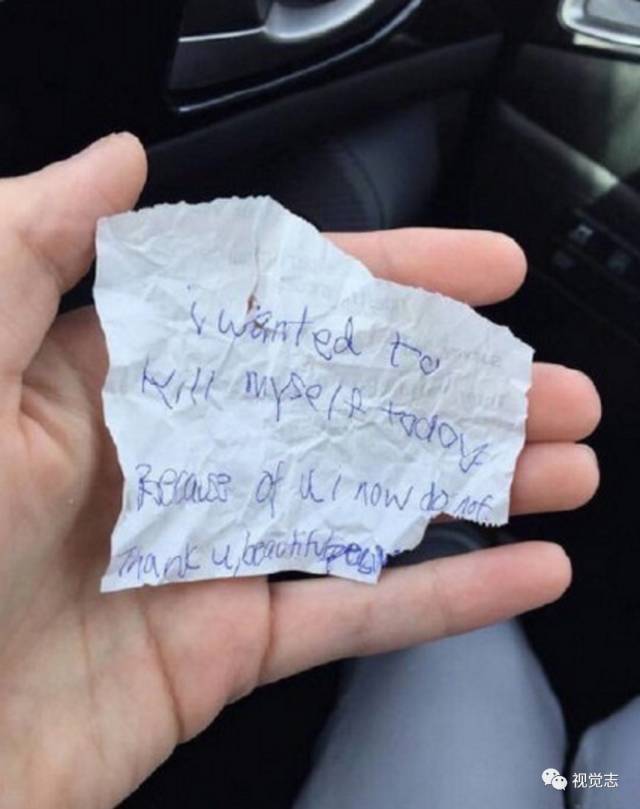 i wanted to
kill myself today
Because of u i now do not
Thank u, beautiful person
视觉志